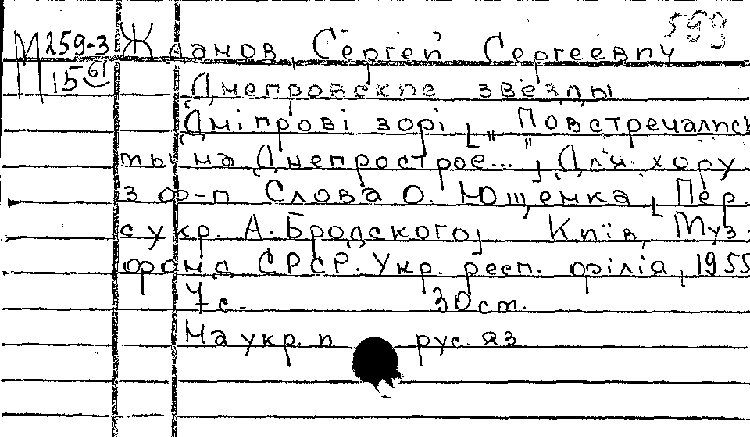 599
М 259-3 Жданов, Сергей Сергеевич
15 61
Днепровские звезды
Дніпрові зорі [„Повстречались
ты на Днепрострое..."] Для хору
з ф-п Слова О. Ющенка [Пер.
с укр. А. Бродского] Київ, Муз.
фонд СРСР. Укр. респ. філія, 1955
7 с. 30 cm.
На укр. и рус. яз